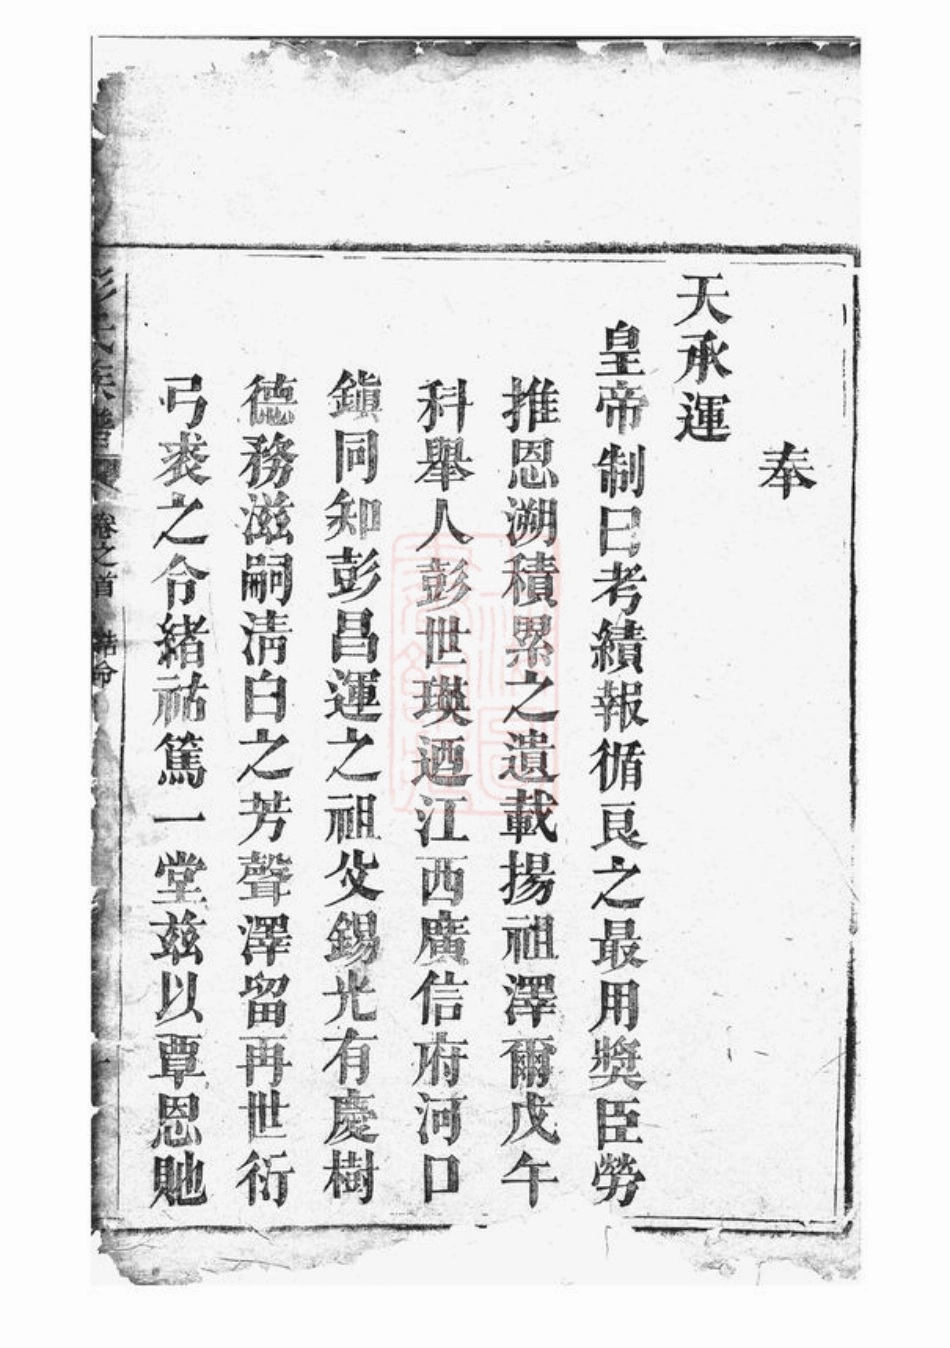 奉
天承運
皇帝制曰考績報循良之最用獎臣勞
推恩溯積累之遺載揚祖澤爾戊午
科舉人彭世瑛迺江西廣信府河口
鎮同知彭昌運之祖父錫光有慶樹
德務滋嗣清白之芳聲澤留再世衍
弓裘之令緒祐篤一堂茲以覃恩貤
彭氏族譜 卷之首 誥命